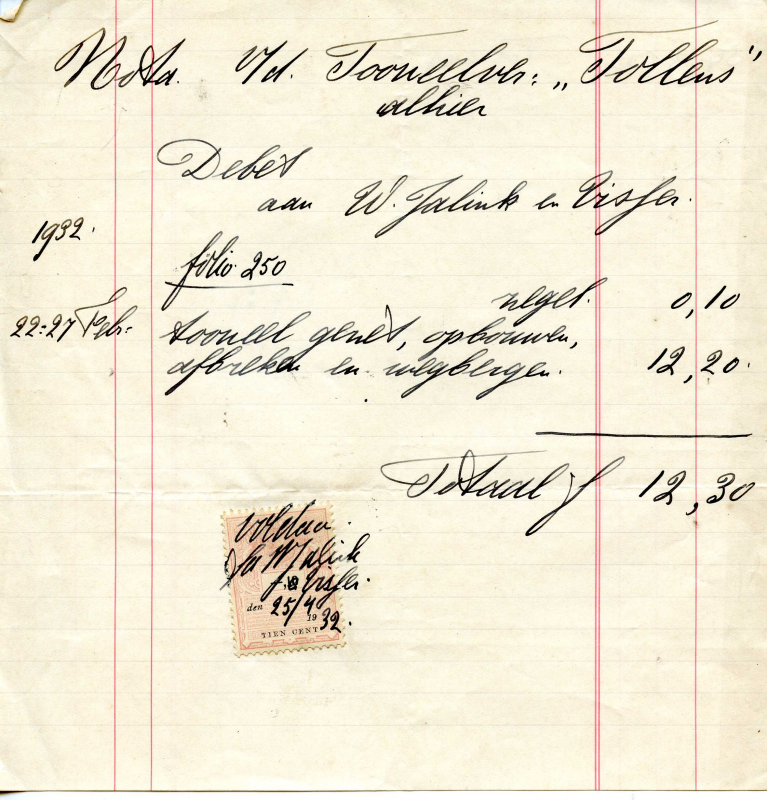 Nota. v/d. Tooneelver: „Tollens”
alhier
Debet
aan W. Jalink en Visser.
1932.
folio 250
zegel. 0,10
22-27 Febr: tooneel gezet, opbouwen,
afbreken en wegbergen. 12,20.
Totaal f 12,30
Voldaan.
fa W Jalink
Visser.
den 25/4 1932.
TIEN CENT